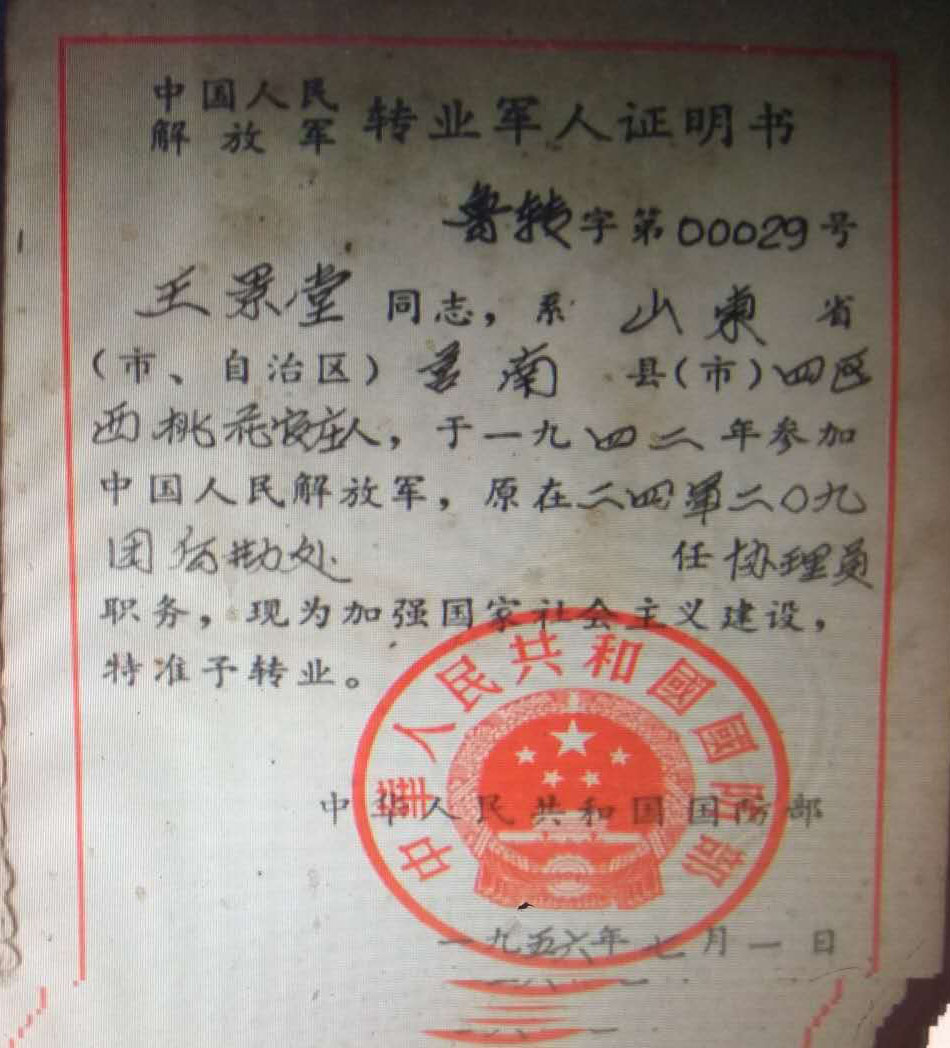 中国人民
解放军 转业军人证明书
鲁转字第00029号
王景堂 同志，系 山東 省
（市、自治区）莒南 县（市）四区
西桃花家庄人，于一九四二年参加
中国人民解放军，原在二四軍二〇九
团后勤处 任协理员
职务，现为加强国家社会主义建设，
特准予转业。
中华人民共和国国防部
中華人民共和國國防部
一九五六年七月一日